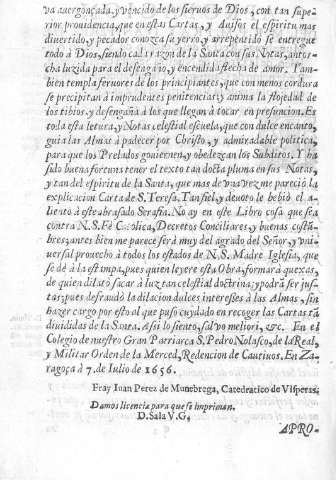 va auergonçada, y vencido de los sieruos de Dios, con tan supe-
rior prouidencia, que en estas Cartas, y Auisos el espiritu mas
diuertido, y pecador conozca su yerro, y arrepentido se entregue
todo à Dios, siendo cada razon de la Santa con sus Notas, antor-
cha luzida para el desengaño, y encendida flecha de amor. Tam
bien templa feruores de los principiantes, que con menos cordura
se precipitan à imprudentes penitencias; y anima la flojedad de
los tibios, y desengaña à los que llegan à tocar en presuncion. Es
toda esta letura, y Notas celestial escuela, que con dulce encanto,
guia las Almas à padecer por Christo, y admirable politica,
para que los Prelados gouiernen, y obedezcan los Subditos. Y ha
sido buena fortuna tener el texto tan docta pluma en sus Notas,
y tan del espiritu de la Santa, que mas de vna vez me pareció la
explicacion Carta de S. Teresa. Tan fiel, y deuoto le bebió el a-
liento à este abrasado Serafin. No ay en este Libro cosa que sea
contra N. S. Fè Catolica, Decretos Conciliares, y buenas costũ-
bres; antes bien me parece serà muy del agrado del Señor, y vni-
uersal prouecho à todos los estados de N. S. Madre Iglesia, que
se dè à la estampa, pues quien leyere esta Obra, formarà quexas,
de quien dilatò sacar à luz tan celestial doctrina; y podrà ser jus-
tas; pues defraudò la dilacion dulces interesses à las Almas, sin
hazer cargo por esto al que puso cuydado en recoger las Cartas tã
diuididas de la Santa. Assi lo siento, saluo meliori, &c. En el
Colegio de nuestro Gran Patriarca S. Pedro Nolasco, de la Real,
y Militar Orden de la Merced, Redencion de Cautiuos. En Za-
ragoça à 7. de Iulio de 1656.
Fray Iuan Perez de Munebrega, Catedratico de Visperas.
Damos licencia para que se impriman.
D. Sala V. G.
APRO-